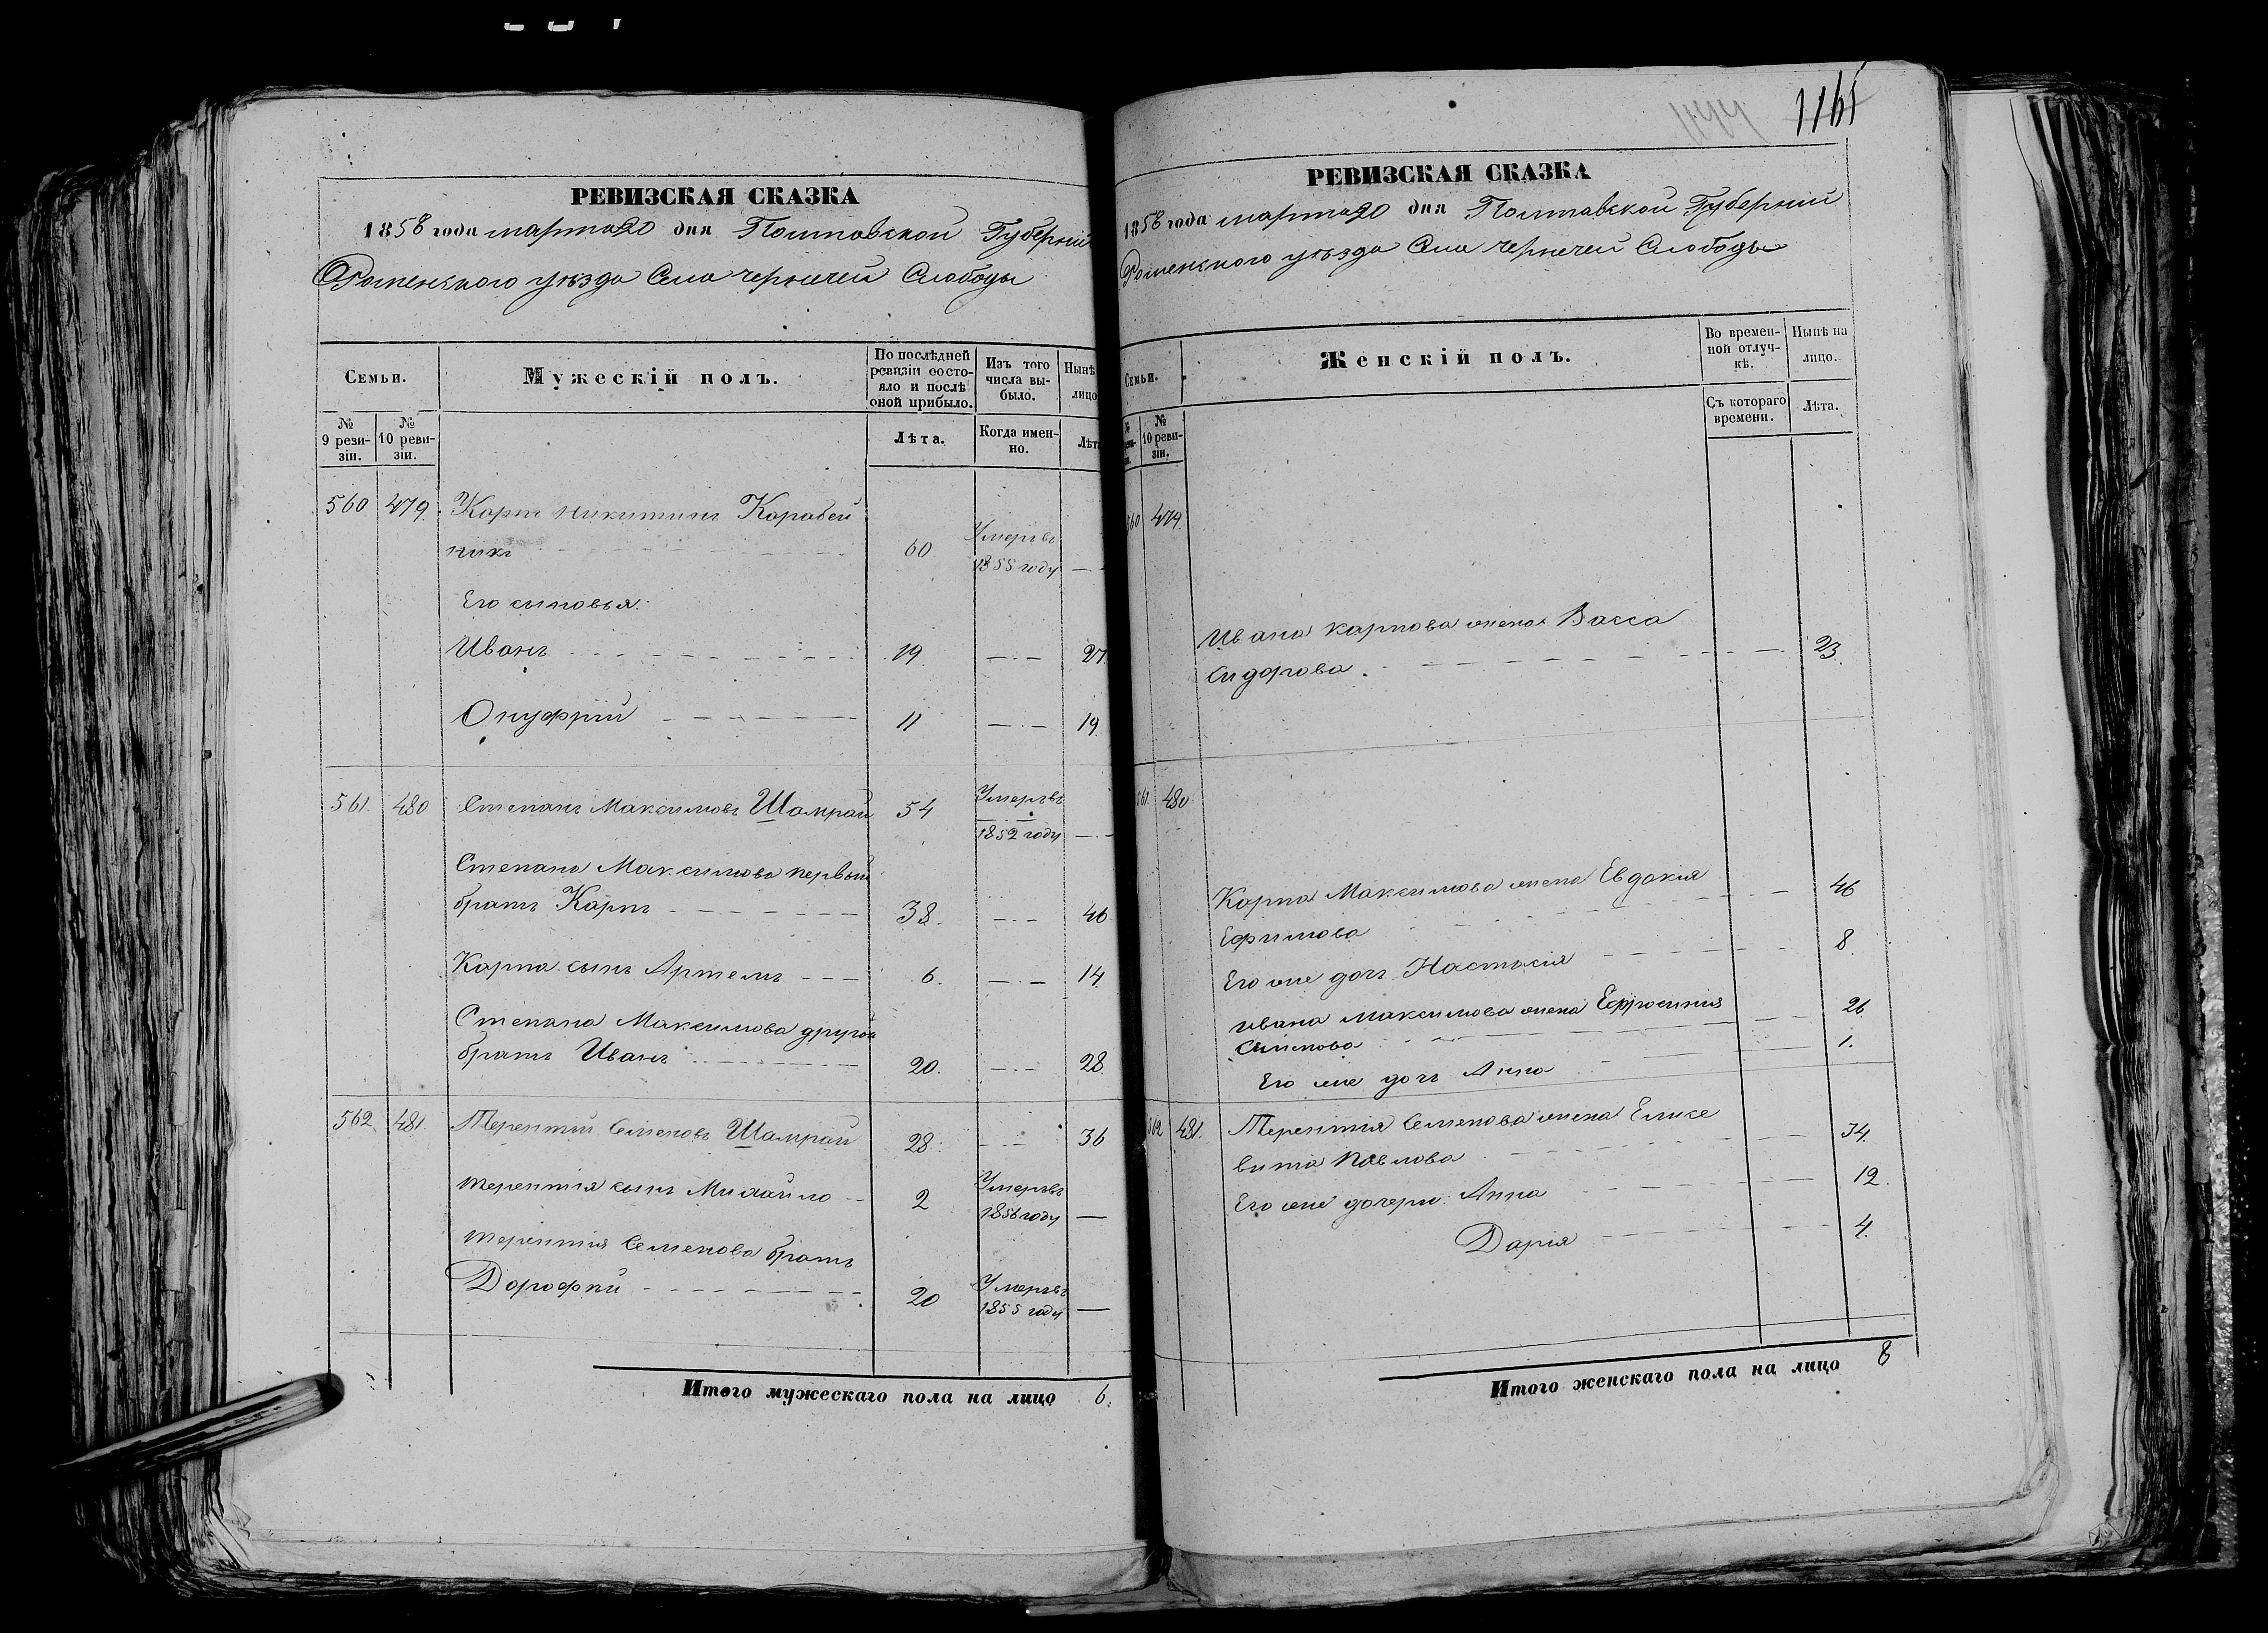 РЕВИЗСКАЯ СКАЗКА
1858 года марта 20 дня Полтавской Губерніи
Роменского уѣзда Села чернечей Слободы
Семьи.
Мужескій полъ.
По послѣдней ревизіи состояло и послѣ оной прибыло.
Изъ того числа выбыло.
Нынѣ
лицо
№ 9 ревизіи.
№ 10 ревизіи.
Лѣта.
Когда именно.
Лѣта
560 479. Карпъ никитинъ Карабей
никъ 60 Умеръ въ
1855 году —
Его сыновья:
Иванъ 19. — 27.
Онуфрій 11 — 19.
561. 480 Степанъ Максимовъ Шамрай 54 Умеръ въ
1852 году —
Степана Максимова первый
братъ Карпъ 38. — 46
Карпа сынъ Артемъ 6. — 14.
Степана Максимова другой
братъ Иванъ 20. — 28.
562. 481. Терентій Семеновъ Шамрай 28. — 36
терентія сынъ Михайло 2 Умеръ въ
1856 году —
терентія Семенова братъ
Дорофей 20 Умеръ въ
1855 году —
Итого мужескаго пола на лицо 6.
1165
РЕВИЗСКАЯ СКАЗКА
1858 года марта 20 дня Полтавской Губерніи
Роменского уѣзда Села чернечей Слободы
Семьи.
Женскій полъ.
Во временной отлучкѣ.
Нынѣ на лицо.
№ 10 ревизіи.
Съ котораго времени.
Лѣта.
560 479.
Ивана карпова жена Васса
Сидорова. — 23.
561. 480
Карпа Максимова жена Евдокія — 46
Ефимова
Его же дочь Настасія — 8.
ивана максимова жена Ефросинія — 26.
Симонова
Его же дочь Анна — 1.
562 481. Терентія Семенова жена Елисе
вита Павлова — 34.
Его же дочери: Анна — 12.
Дарія — 4.
Итого женскаго пола на лицо 8